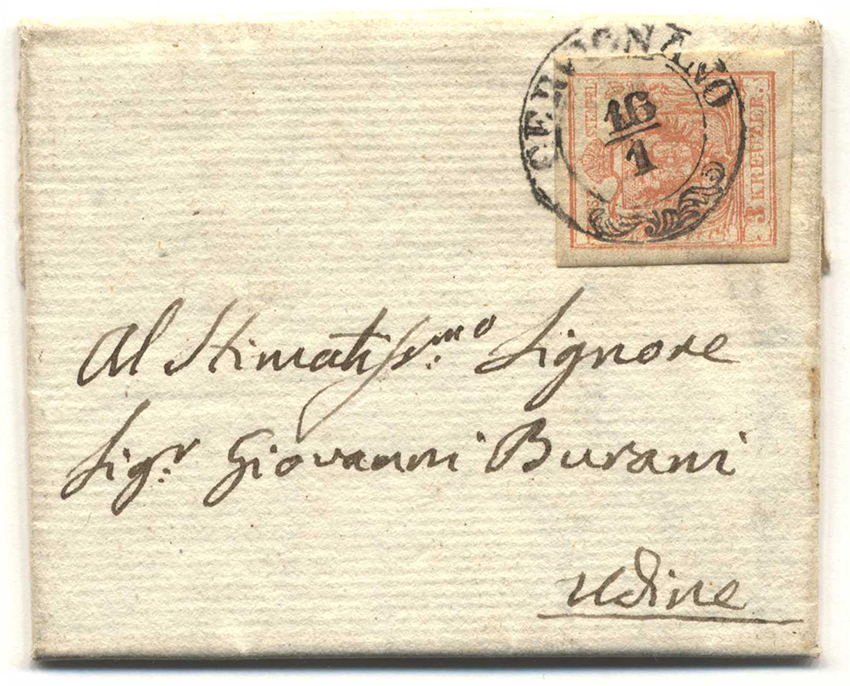 CERVIGNANO
16
1
STEMPEL
3 KREUZER.
Al Stimatiss.mo Signore
Sig.r Giovanni Burani
Udine